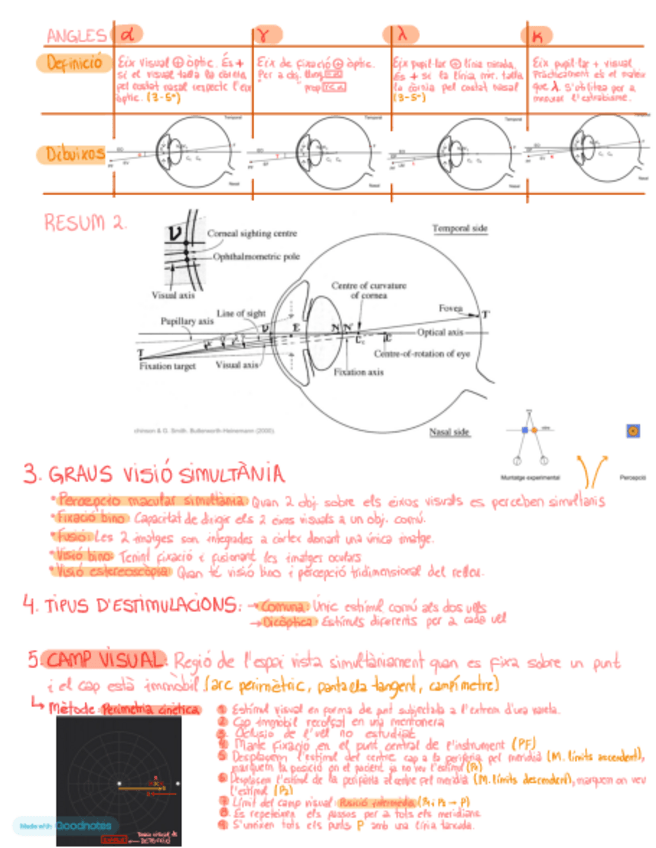 ANGLES α γ λ κ
Definició
Eix visual ⊕ òptic. És +
si el visual talla la còrnia
pel costat nasal respecte l'eix
òptic. (3-5°)
Eix de fixació ⊕ òptic.
Per a obj.
prop
Eix pupil·lar ⊕ línia mirada.
És + si la línia mir. talla
la còrnia pel costat nasal
(3-5°)
Eix pupil·lar + visual.
Pràcticament és el mateix
que λ. S'utilitza per a
mesurar l'estrabisme.
Dibuixos
Temporal
Nasal
Temporal
Nasal
Temporal
Nasal
Temporal
Nasal
RESUM 2.
Corneal sighting centre
Ophthalmometric pole
Visual axis
Temporal side
Centre of curvature
of cornea
Line of sight
Pupillary axis
Fovea
T'
Optical axis
E
N N'
T
Fixation target
Visual axis
Centre-of-rotation of eye
Fixation axis
Nasal side
& G. Smith. Butterworth-Heinemann (2000).
Muntatge experimental
Percepció
3. GRAUS VISIÓ SIMULTÀNIA
* Percepció macular simultània: Quan 2 obj. sobre els eixos visuals es perceben simultanis
* Fixació bino: Capacitat de dirigir els 2 eixos visuals a un obj. comú.
* Fusió: Les 2 imatges son integrades a còrtex donant una única imatge.
* Visió bino: Tenint fixació i fusionant les imatges oculars
* Visió estereoscòpia: Quan té visió bino i percepció tridimensional del relleu.
4. TIPUS D'ESTIMULACIONS: → Comuna: Únic estímul comú als dos ulls
→ Dicòptica: Estímuls diferents per a cada ull
5. CAMP VISUAL: Regió de l'espai vista simultàniament quan es fixa sobre un punt
i el cap està immòbil (arc perimètric, pantalla tangent, campímetre)
↳ Mètode: Perimetria cinètica
1 Estímul visual en forma de punt subjectada a l'extrem d'una vareta.
2 Cap immòbil recolzat en una mentonera
3 Oclusió de l'ull no estudiat
4 Manté fixació en el punt central de l'instrument (PF)
5 Desplacem l'estímul del centre cap a la perifèria pel meridià (M. límits ascendent),
marquem la posició on el pacient ja no veu l'estímul (P1)
6 Desplacem l'estímul de la perifèria al centre pel meridià (M. límits descendent), marquem on veu
l'estímul (P2)
7 Límit del camp visual: Posició intermèdia (P1, P2 → P)
8 Es repeteixen els passos per a tots els meridians
9 S'uneixen tots els punts P amb una línia tancada.
Made with Goodnotes